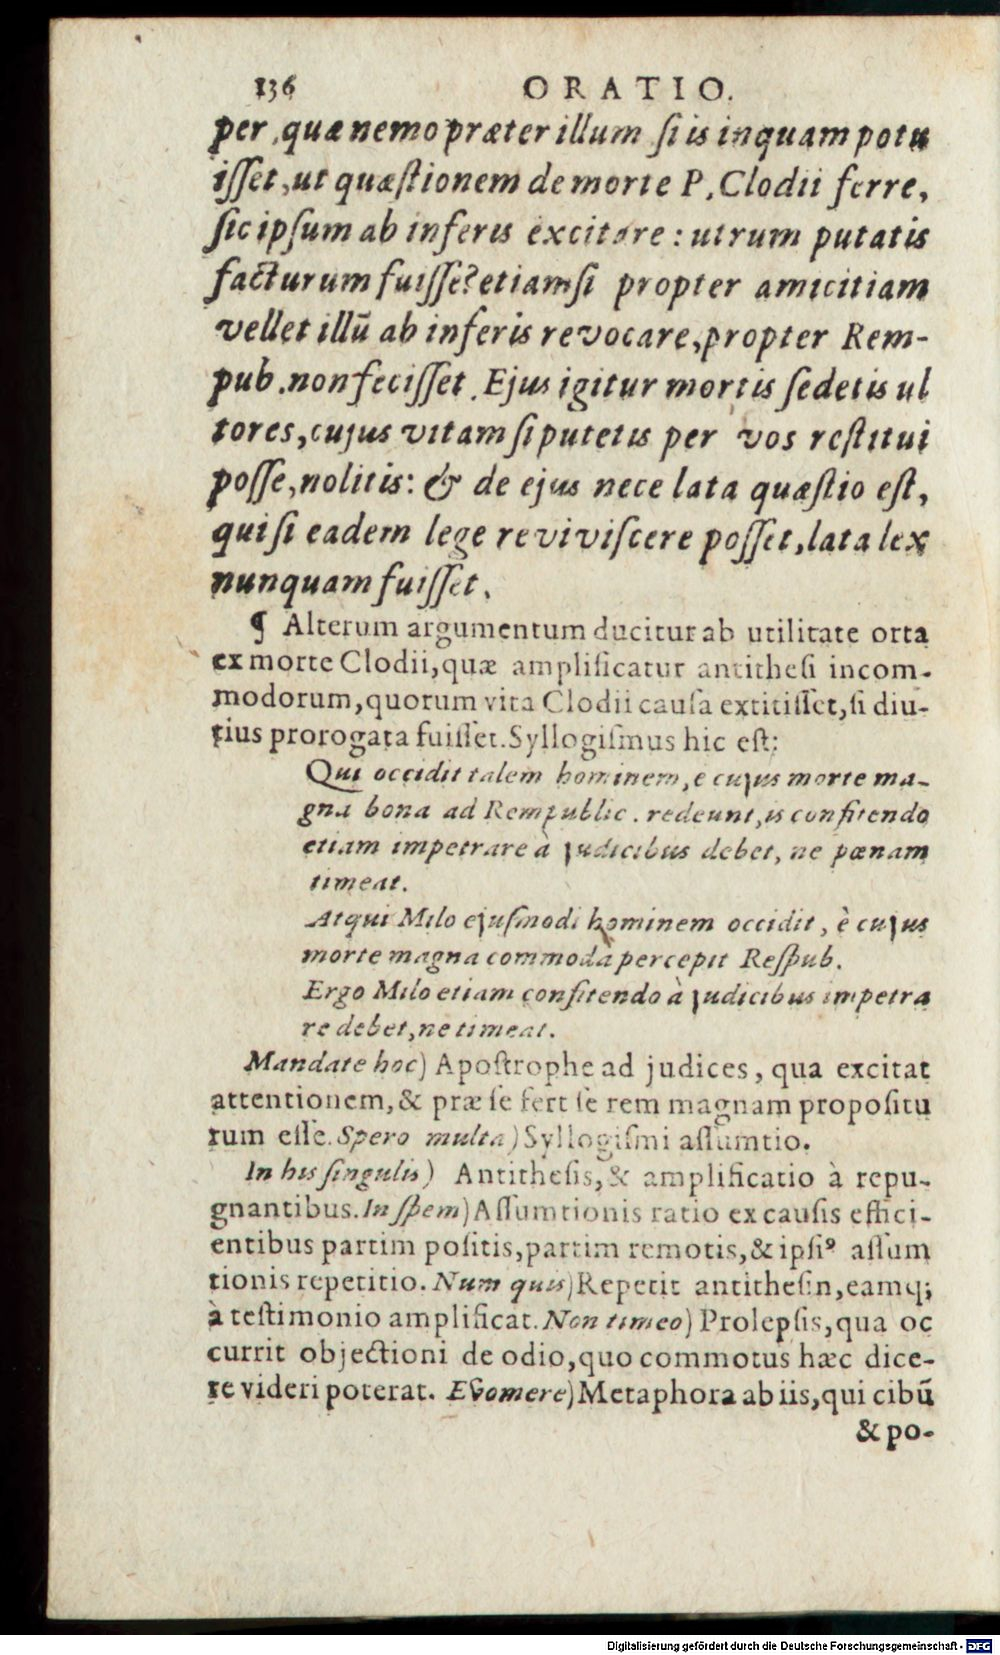 136 ORATIO.
per, quæ nemo præter illum si is inquam potu
isset, ut quæstionem de morte P. Clodii ferre,
sic ipsum ab inferis excitare: utrum putatis
facturum fuisse? etiamsi propter amicitiam
vellet illũ ab inferis revocare, propter Rem-
pub. non fecisset. Ejus igitur mortis sedetis ul
tores, cujus vitam si putetis per vos restitui
posse, nolitis: & de ejus nece lata quæstio est,
qui si eadem lege reviviscere posset, lata lex
nunquam fuisset.
¶ Alterum argumentum ducitur ab utilitate orta
ex morte Clodii, quæ amplificatur antithesi incom-
modorum, quorum vita Clodii causa extitisset, si diu-
tius prorogata fuisset. Syllogismus hic est:
Qui occidit talem hominem, e cujus morte ma-
gna bona ad Rempublic. redeunt, is confitendo
etiam impetrare à judicibus debet, ne pœnam
timeat.
Atqui Milo ejusmodi hominem occidit, è cujus
morte magna commoda percepit Respub.
Ergo Milo etiam confitendo à judicibus impetra
re debet, ne timeat.
Mandate hoc) Apostrophe ad judices, qua excitat
attentionem, & præ se fert se rem magnam propositu
rum esse. Spero multa) Syllogismi assumtio.
In his singulis) Antithesis, & amplificatio à repu-
gnantibus. In spem) Assumtionis ratio ex causis effici-
entibus partim positis, partim remotis, & ipsiꝰ assum
tionis repetitio. Num quis) Repetit antithesin, eamq;
à testimonio amplificat. Non timeo) Prolepsis, qua oc
currit objectioni de odio, quo commotus hæc dice-
re videri poterat. Evomere) Metaphora ab iis, qui cibũ
& po-
Digitalisierung gefördert durch die Deutsche Forschungsgemeinschaft - DFG